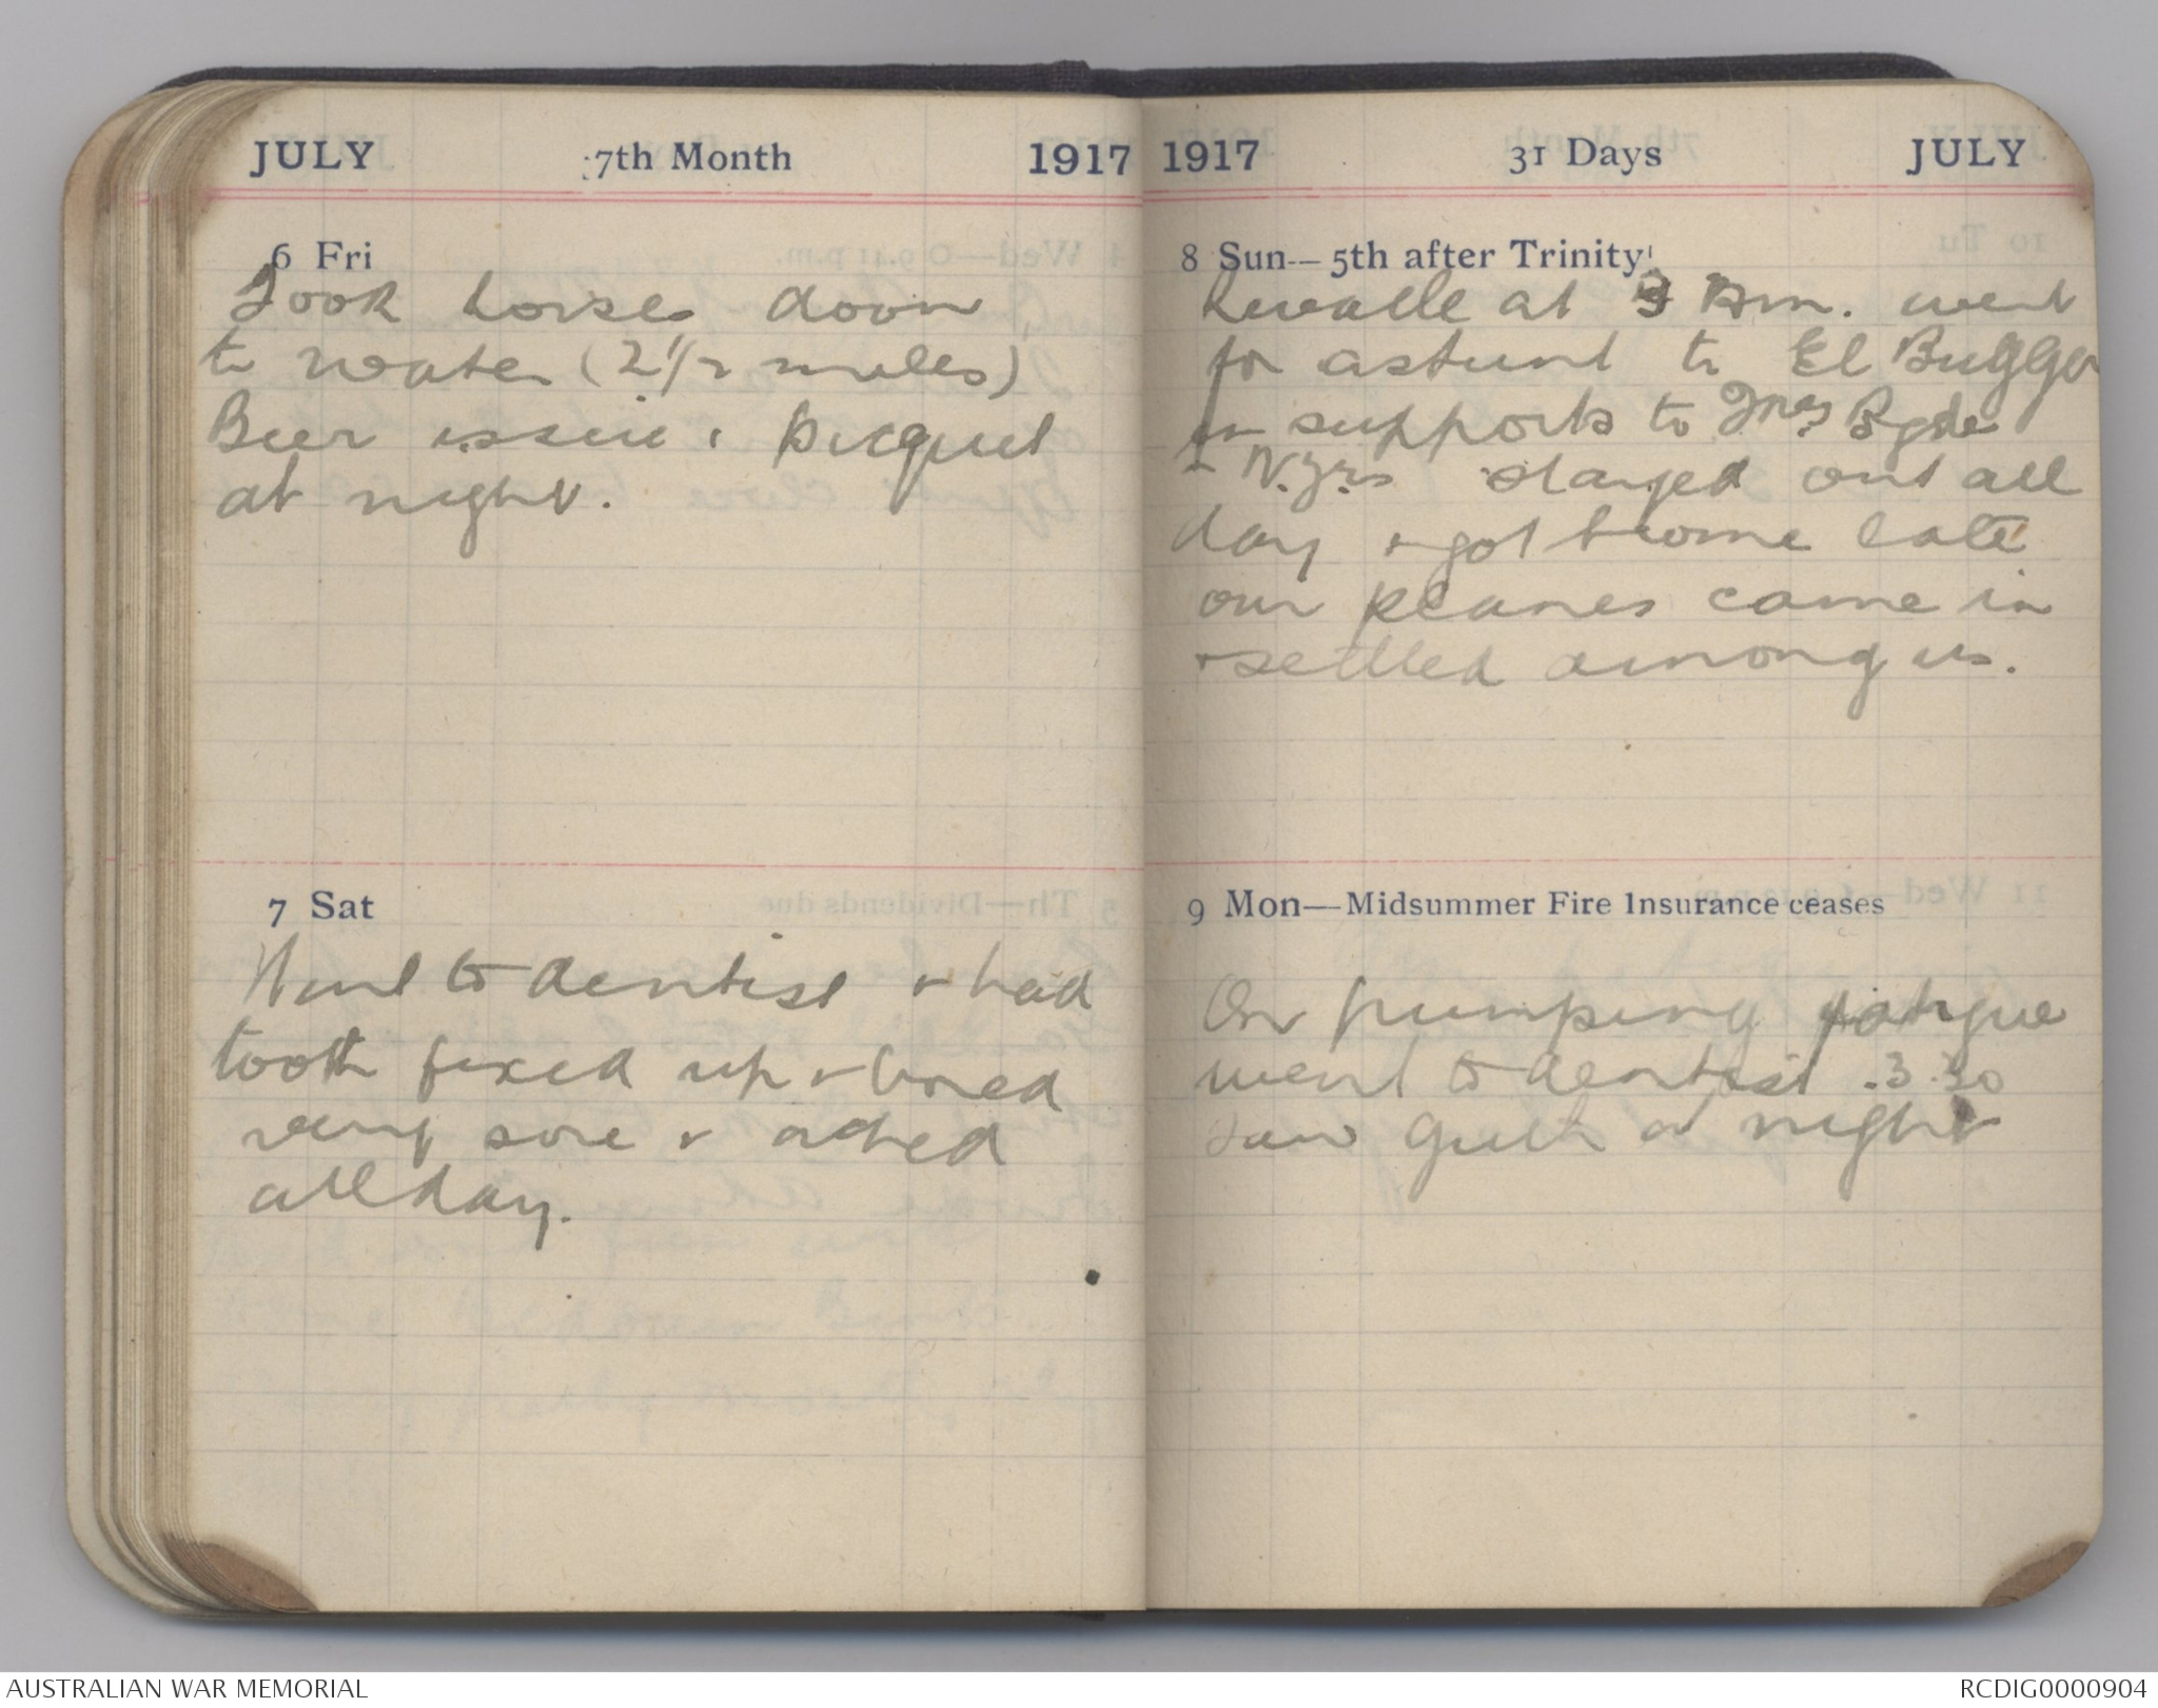 JULY 7th Month 1917
6 Fri
Took horses down
to water (2 1/2 miles)
Beer issue & picquet
at night.
7 Sat
Went to dentist & had
tooth fixed up & bored
very sore & ached
all day.
1917 31 Days JULY
8 Sun — 5th after Trinity
Revalle at 3 Am. went
for a stunt to El Bugga
in supports to Bgde
N.Zrs stayed out all
day & got home late
our planes came in
& settled among us.
9 Mon—Midsummer Fire Insurance ceases
On pumping fatigue
went to dentist .3.30
saw at night
AUSTRALIAN WAR MEMORIAL
RCDIG0000904